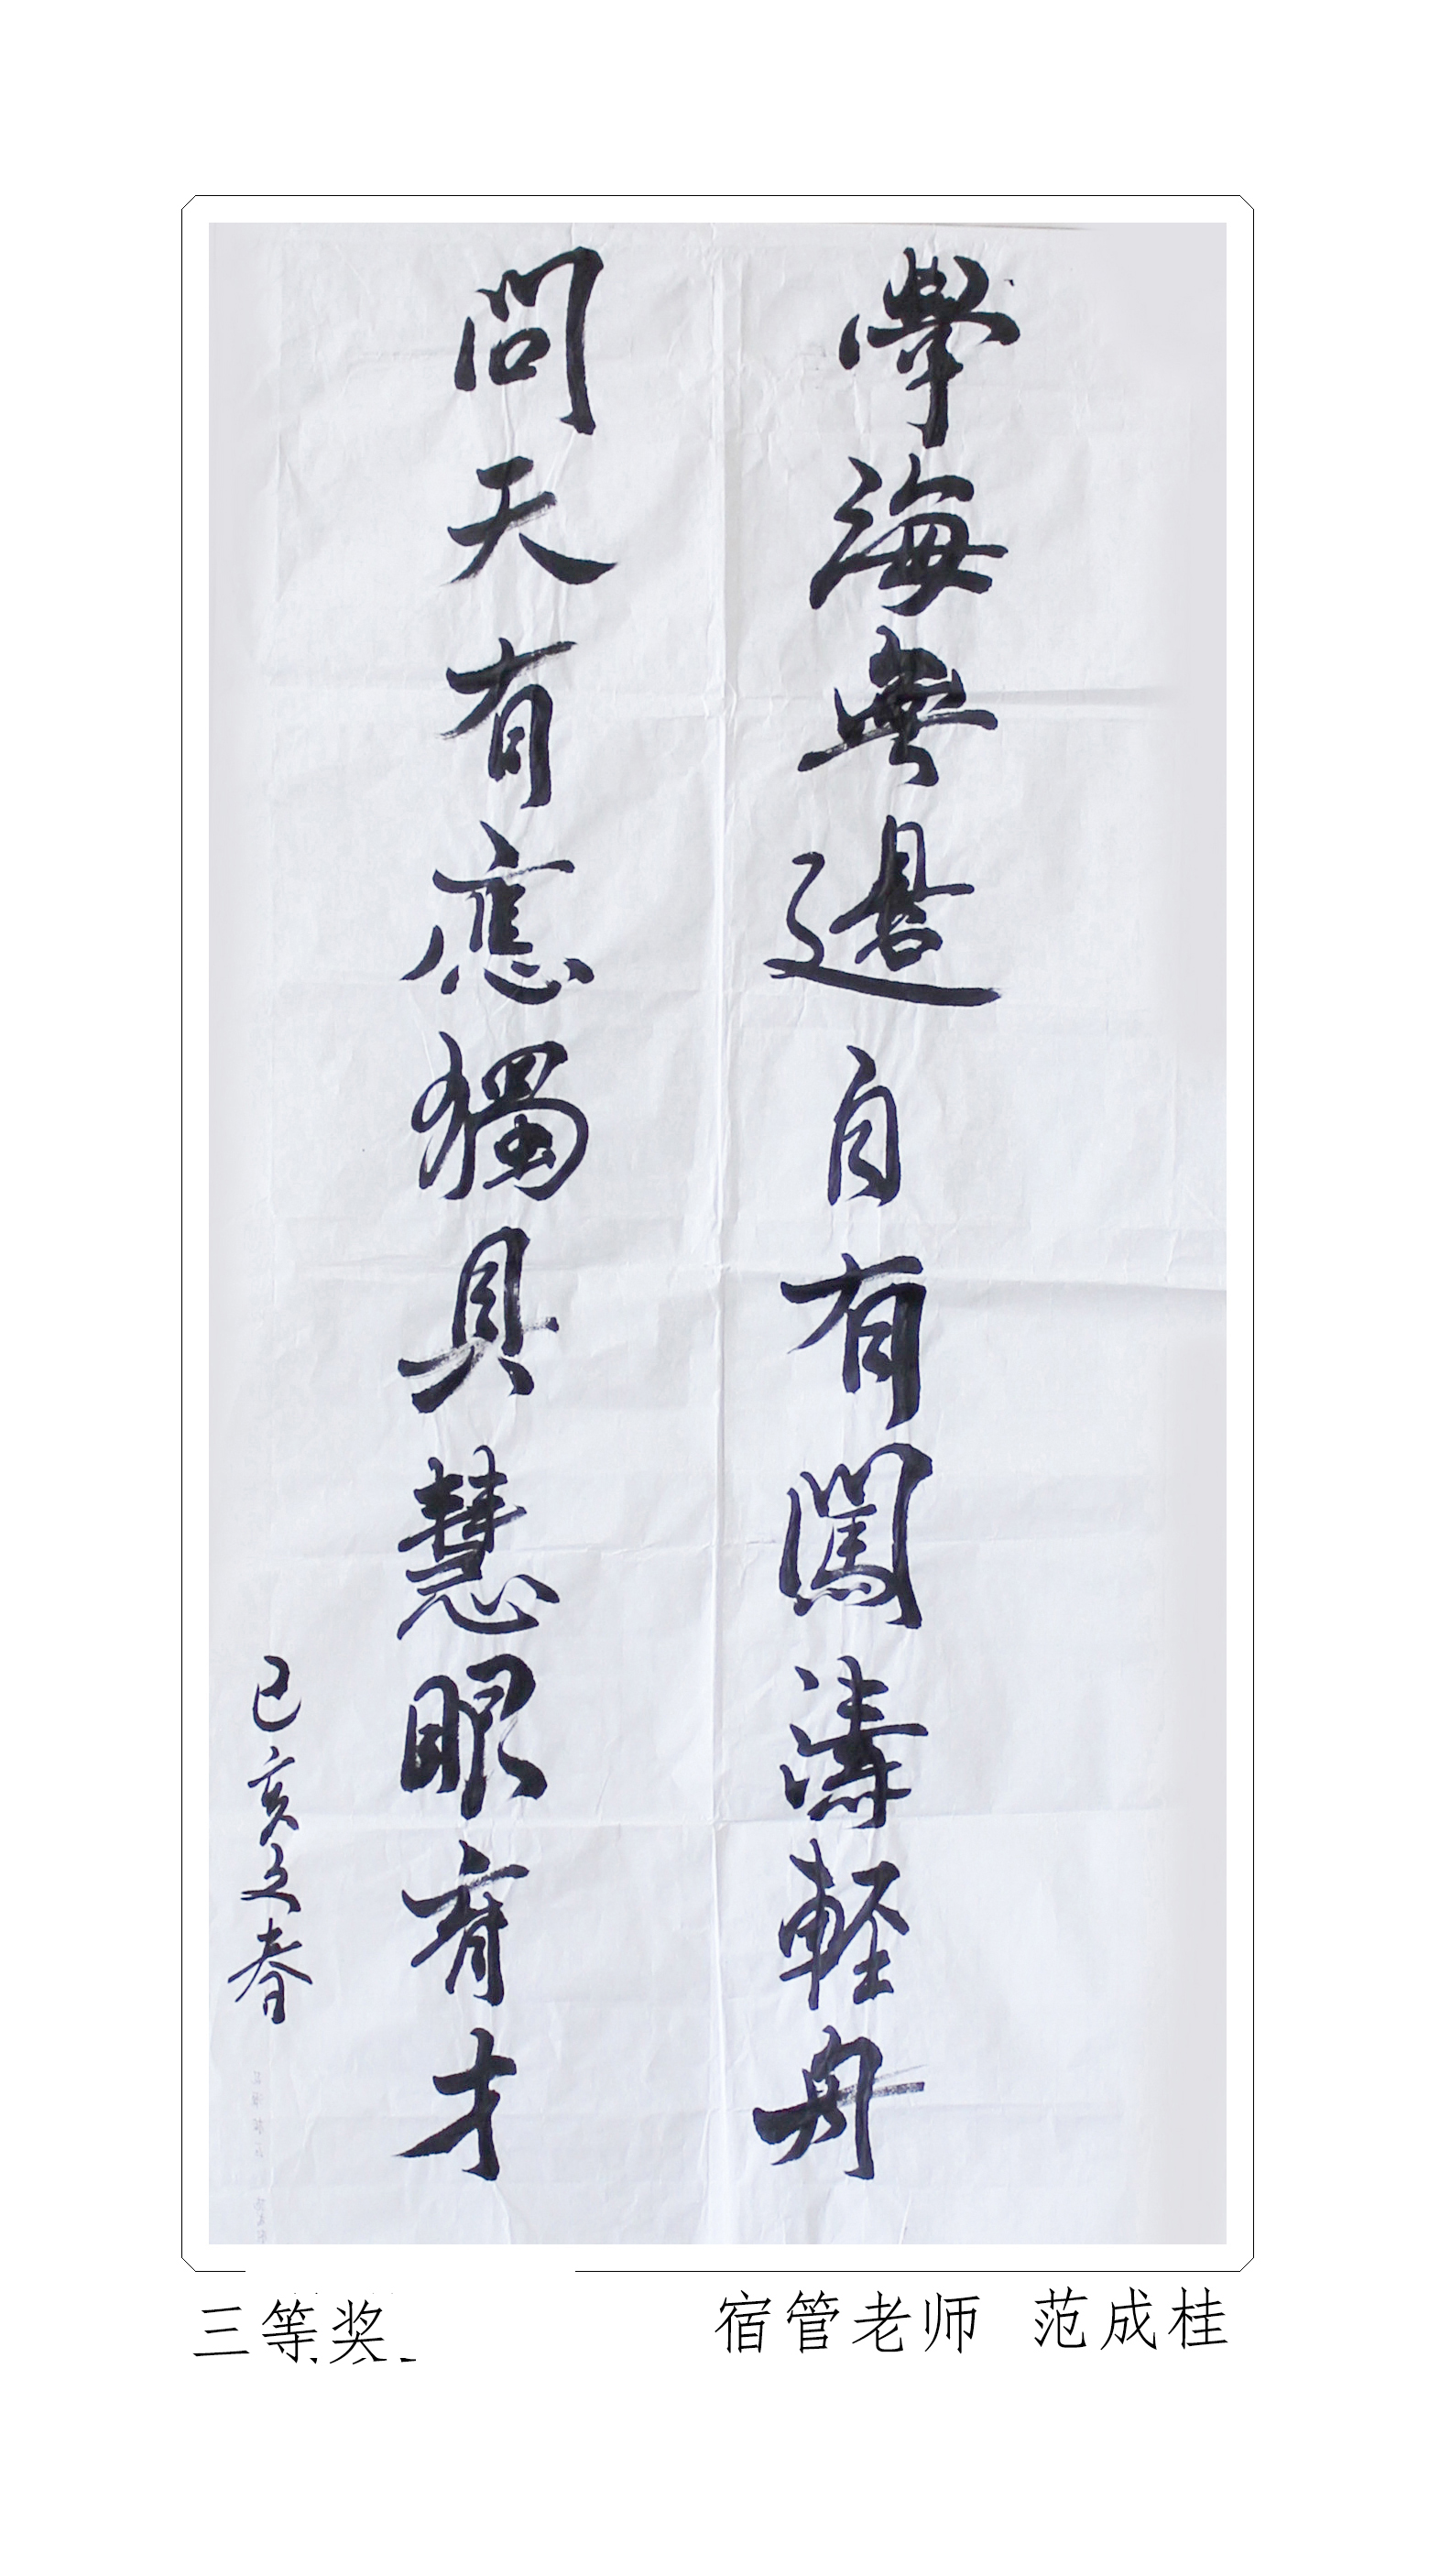 學海無邊自有闖濤輕舟
問天有應獨具慧眼育才
己亥之春
三等奖
宿管老师 范成桂